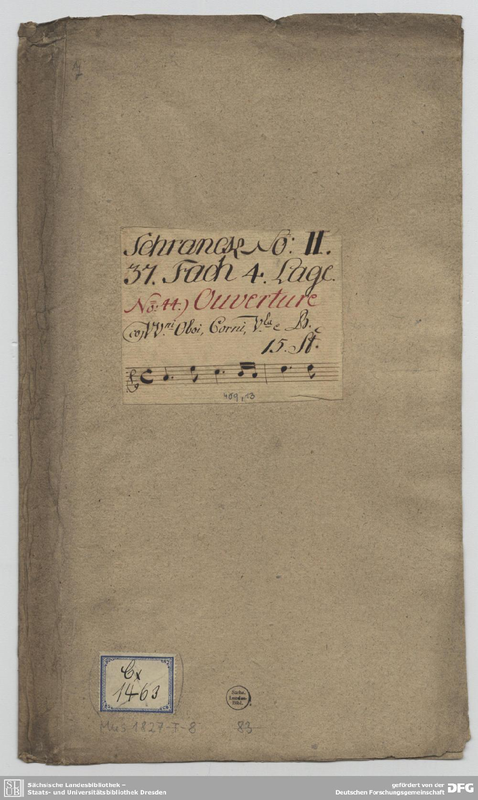 Schranck No: II.
37. Fach 4. Lage.
No: 44.) Ouverture
co VVni Oboi, Corni, Vla e B.
15. St.
Cx
1463
Mus 1827-F-8 83
Sächsische Landesbibliothek –
Staats- und Universitätsbibliothek Dresden
gefördert von der
Deutschen Forschungsgemeinschaft
DFG
SLUB